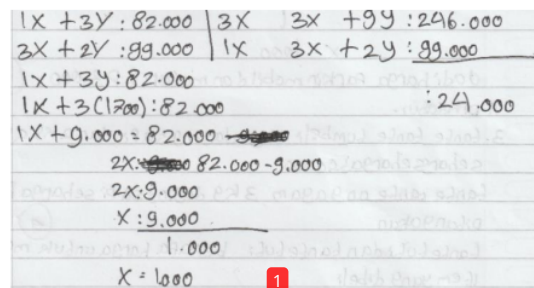 1x + 3y : 82.000 | 3x 3x + 9y : 246.000
3x + 2y : 99.000 | 1x 3x + 2y : 99.000
1x + 3y : 82.000
: 24.000
1x + 3(1700) : 82.000
1x + 9.000 = 82.000
2x : 82.000 - 9.000
2x : 9.000
x : 9.000
1.000
x = 1.000
1